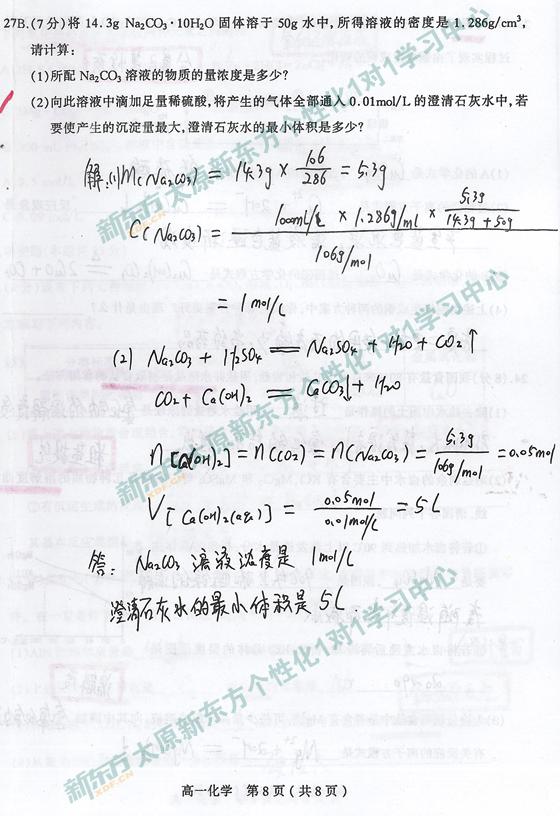 27B.(7分)将 14.3g Na₂CO₃·10H₂O 固体溶于 50g 水中,所得溶液的密度是 1.286g/cm³,
请计算:
(1)所配 Na₂CO₃ 溶液的物质的量浓度是多少?
(2)向此溶液中滴加足量稀硫酸,将产生的气体全部通入 0.01mol/L 的澄清石灰水中,若
要使产生的沉淀量最大,澄清石灰水的最小体积是多少?
解:(1) m(Na₂CO₃) = 14.3g × 106/286 = 5.3g
C(Na₂CO₃) = (1000mL/L × 1.286g/ml × 5.3g/(14.3g + 50g)) / 106g/mol
= 1mol/L
(2) Na₂CO₃ + H₂SO₄ = Na₂SO₄ + H₂O + CO₂↑
CO₂ + Ca(OH)₂ = CaCO₃↓ + H₂O
n[Ca(OH)₂] = n(CO₂) = n(Na₂CO₃) = 5.3g/106g/mol = 0.05mol
V[Ca(OH)₂(aq)] = 0.05mol/0.01mol/L = 5L
答: Na₂CO₃ 溶液浓度是 1mol/L
澄清石灰水的最小体积是 5L.
新东方 XDF.CN 太原新东方个性化1对1学习中心
新东方 XDF.CN 太原新东方个性化1对1学习中心
新东方 XDF.CN 太原新东方个性化1对1学习中心
高一化学 第 8 页 (共 8 页)